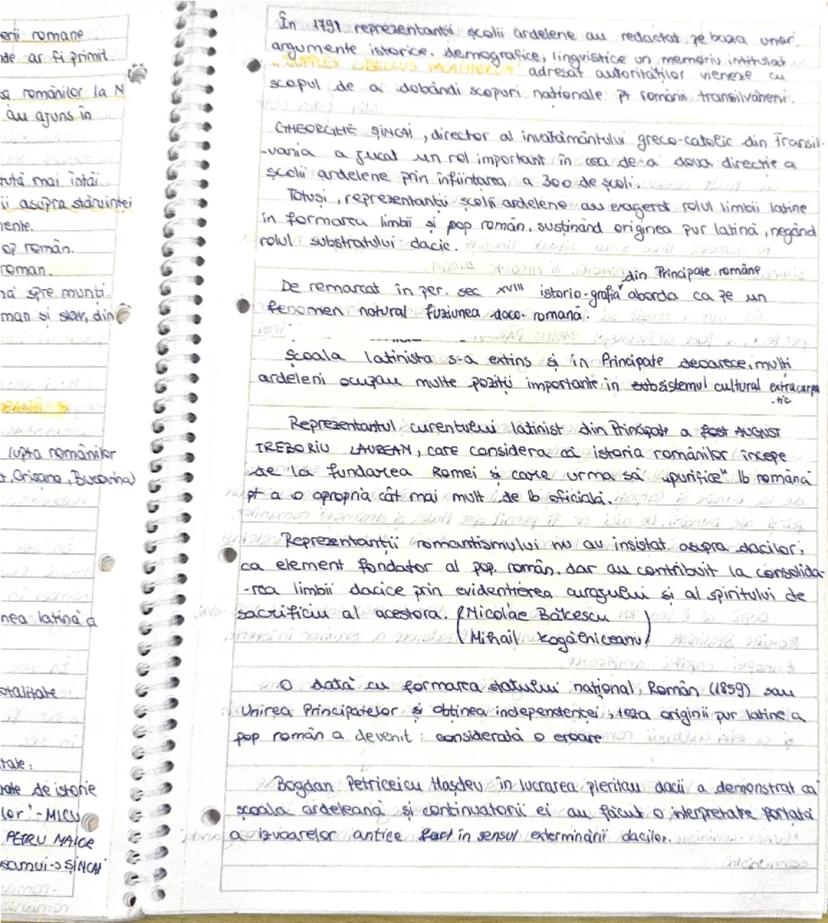 erii romane
de ar fi primit
românilor la N
au ajuns în
tută mai întâi
ii asupra stăruinței
mente.
op român.
roman.
spre munți.
man și slav, din
lupta românilor
Crișana, Bucovina)
nea latină a
otalitate
tate:
de istorie
lor" - MICU
PETRU MAIOR
ȘINCAI
În 1791 reprezentanții școlii ardelene au redactat pe baza unor
argumente istorice, demografice, lingvistice un memoriu intitulat
"SUPPLEX LIBELLUS VALACHORUM" adresat autorităților vieneze cu
scopul de a dobândi scopuri naționale pt românii transilvăneni.
GHEORGHE ȘINCAI, director al învățământului greco-catolic din Transil-
-vania a jucat un rol important în cea de-a doua direcție a
școlii ardelene prin înființarea a 300 de școli.
Totuși, reprezentanții școlii ardelene au exagerat rolul limbii latine
în formarea limbii și pop român, susținând originea pur latină, negând
rolul substratului dacic.
De remarcat în per. sec XVIII istorio-grafia din Principate române aborda ca pe un
fenomen natural fuziunea daco-romană.
Școala latinista s-a extins și în Principate deoarece, mulți
ardeleni ocupau multe poziții importante în subsistemul cultural extracarpa
-tic
Reprezentantul curentului latinist din Principate a fost AUGUST
TREBORIU LAUREAN, care considera că istoria românilor începe
de la fundarea Romei și care urma să "purifice" lb română
pt a o apropria cât mai mult de lb oficială.
Reprezentanții romantismului nu au insistat asupra dacilor,
ca element fondator al pop. român. dar au contribuit la consolida-
-rea limbii dacice prin evidențierea curajului și al spiritului de
sacrificiu al acestora. (Nicolae Bălcescu
Mihail Kogălniceanu)
O dată cu formarea statului național Român (1859) sau
Unirea Principatelor și obținea independenței, teza originii pur latine a
pop român a devenit considerată o eroare
Bogdan Petriceicu Hașdeu în lucrarea pieritau dacii a demonstrat că
școala ardeleană și continuatorii ei au făcut o interpretare forțată
a izvoarelor antice în sensul exterminării dacilor.